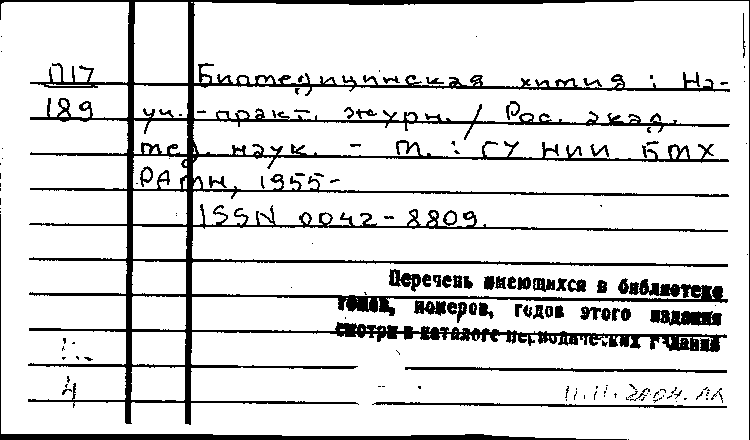 П17
189
Биомедицинская химия : На-
уч.-практ. журн. / Рос. акад.
мед. наук. - М. : ГУ НИИ БМХ
РАМН, 1955-
ISSN 0042-8809.
Перечень имеющихся в библиотеке
томов, номеров, годов этого издания
смотри в каталоге периодических изданий
4
11.11.2004.